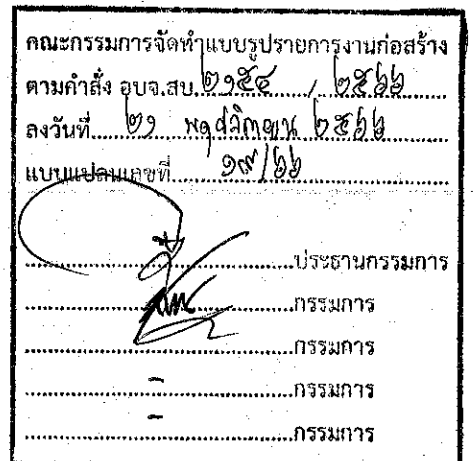 คณะกรรมการจัดทำแบบรูปรายการงานก่อสร้าง
ตามคำสั่ง อบจ.สบ. ๒๑๕๔ / ๒๕๖๖
ลงวันที่ ๒๑ พฤศจิกายน ๒๕๖๖
แบบแปลนเลขที่ ๑๙/๖๖
ประธานกรรมการ
กรรมการ
กรรมการ
- กรรมการ
- กรรมการ